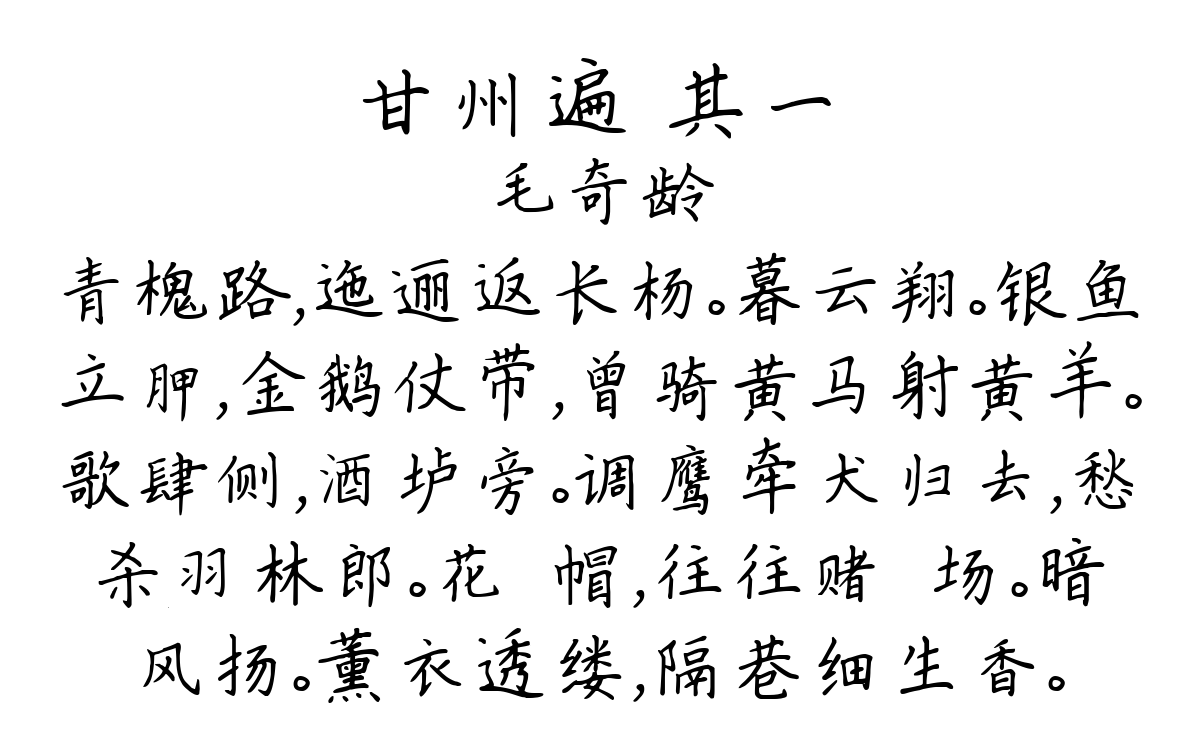 甘州遍 其一
毛奇龄
青槐路,迤逦返长杨。暮云翔。银鱼
立胛,金鹅仗带,曾骑黄马射黄羊。
歌肆侧,酒垆旁。调鹰牵犬归去,愁
杀羽林郎。花 帽,往往赌 场。暗
风扬。薰衣透缕,隔巷细生香。